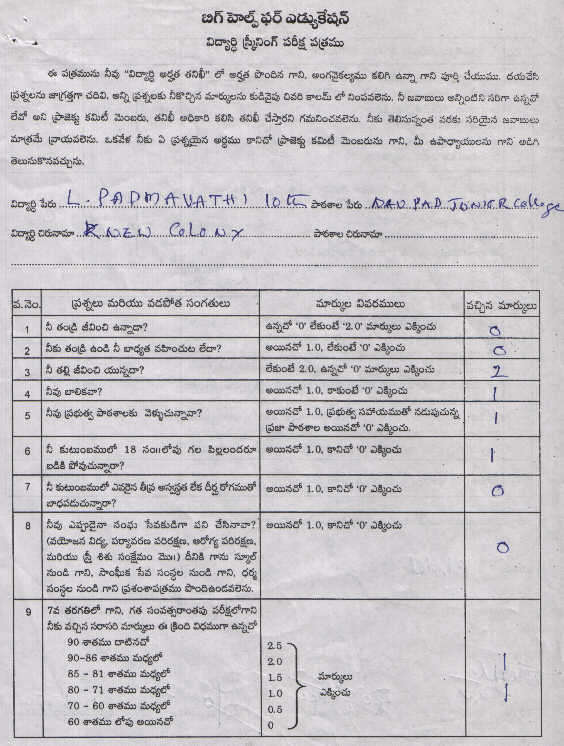 బిగ్ హెల్ప్ ఫర్ ఎడ్యుకేషన్
విద్యార్థి స్క్రీనింగ్ పరీక్ష పత్రము
ఈ పత్రమును నీవు "విద్యార్థి అర్హత తనిఖీ" లో అర్హత పొందిన గాని, అంగవైకల్యము కలిగి ఉన్నా గాని పూర్తి చేయుము. దయచేసి
ప్రశ్నలను జాగ్రత్తగా చదివి, అన్ని ప్రశ్నలకు నీకొచ్చిన మార్కులను కుడివైపు చివరి కాలమ్ లో నింపవలెను. నీ జవాబులు అన్నింటిని సరిగా ఉన్నవో
లేవో అని ప్రాజెక్టు కమిటీ మెంబరు, తనిఖీ అధికారి కలిసి తనిఖీ చేస్తారని గమనించవలెను. నీకు తెలిసున్నంత వరకు సరియైన జవాబులు
మాత్రమే వ్రాయవలెను. ఒకవేళ నీకు ఏ ప్రశ్నయైన అర్థము కానిచో ప్రాజెక్టు కమిటీ మెంబరును గాని, మీ ఉపాధ్యాయులను గాని అడిగి
తెలుసుకొనవచ్చును.
విద్యార్థి పేరు L. PADMAVATHI 10th పాఠశాల పేరు NAUPAD JUNIER College
విద్యార్థి చిరునామా NEW COLONY పాఠశాల చిరునామా
వ.నెం. ప్రశ్నలు మరియు వడపోత సంగతులు మార్కుల వివరములు వచ్చిన మార్కులు
1 నీ తండ్రి జీవించి ఉన్నాడా? ఉన్నచో '0' లేకుంటే '2.0' మార్కులు ఎక్కించు 0
2 నీకు తండ్రి ఉండి నీ బాధ్యత వహించుట లేదా? అయినచో 1.0, లేకుంటే '0' ఎక్కించు 0
3 నీ తల్లి జీవించి యున్నదా? లేకుంటే 2.0, ఉన్నచో '0' మార్కులు ఎక్కించు 2
4 నీవు బాలికవా? అయినచో 1.0, కాకుంటే '0' ఎక్కించు 1
5 నీవు ప్రభుత్వ పాఠశాలకు వెళ్ళుచున్నావా? అయినచో 1.0, ప్రభుత్వ సహాయముతో నడుపుచున్న 1
ప్రజా పాఠశాల అయినచో '0' ఎక్కించు.
6 నీ కుటుంబములో 18 సం॥లోపు గల పిల్లలందరూ అయినచో 1.0, కానిచో '0' ఎక్కించు 1
బడికి పోవుచున్నారా?
7 నీ కుటుంబములో ఎవరైన తీవ్ర అస్వస్థత లేక దీర్ఘ రోగముతో అయినచో 1.0, కానిచో '0' ఎక్కించు 0
బాధపడుచున్నారా?
8 నీవు ఎప్పుడైనా సంఘ సేవకుడిగా పని చేసినావా? అయినచో 1.0, కానిచో '0' ఎక్కించు 0
(వయోజన విద్య, పర్యావరణ పరిరక్షణ, ఆరోగ్య పరిరక్షణ,
మరియు స్త్రీ శిశు సంక్షేమం మొ॥) దీనికి గాను స్కూల్
నుండి గాని, సాంఘిక సేవ సంస్థల నుండి గాని, ధర్మ
సంస్థల నుండి గాని ప్రశంశాపత్రము పొందిఉండవలెను.
9 7వ తరగతిలో గాని, గత సంవత్సరాంతపు పరీక్షలోగాని
నీకు వచ్చిన సరాసరి మార్కులు ఈ క్రింది విధముగా ఉన్నచో
90 శాతము దాటినచో 2.5
90-86 శాతము మధ్యలో 2.0 1
85 - 81 శాతము మధ్యలో 1.5 మార్కులు
80 - 71 శాతము మధ్యలో 1.0 ఎక్కించు 1
70 - 60 శాతము మధ్యలో 0.5
60 శాతము లోపు అయినచో 0